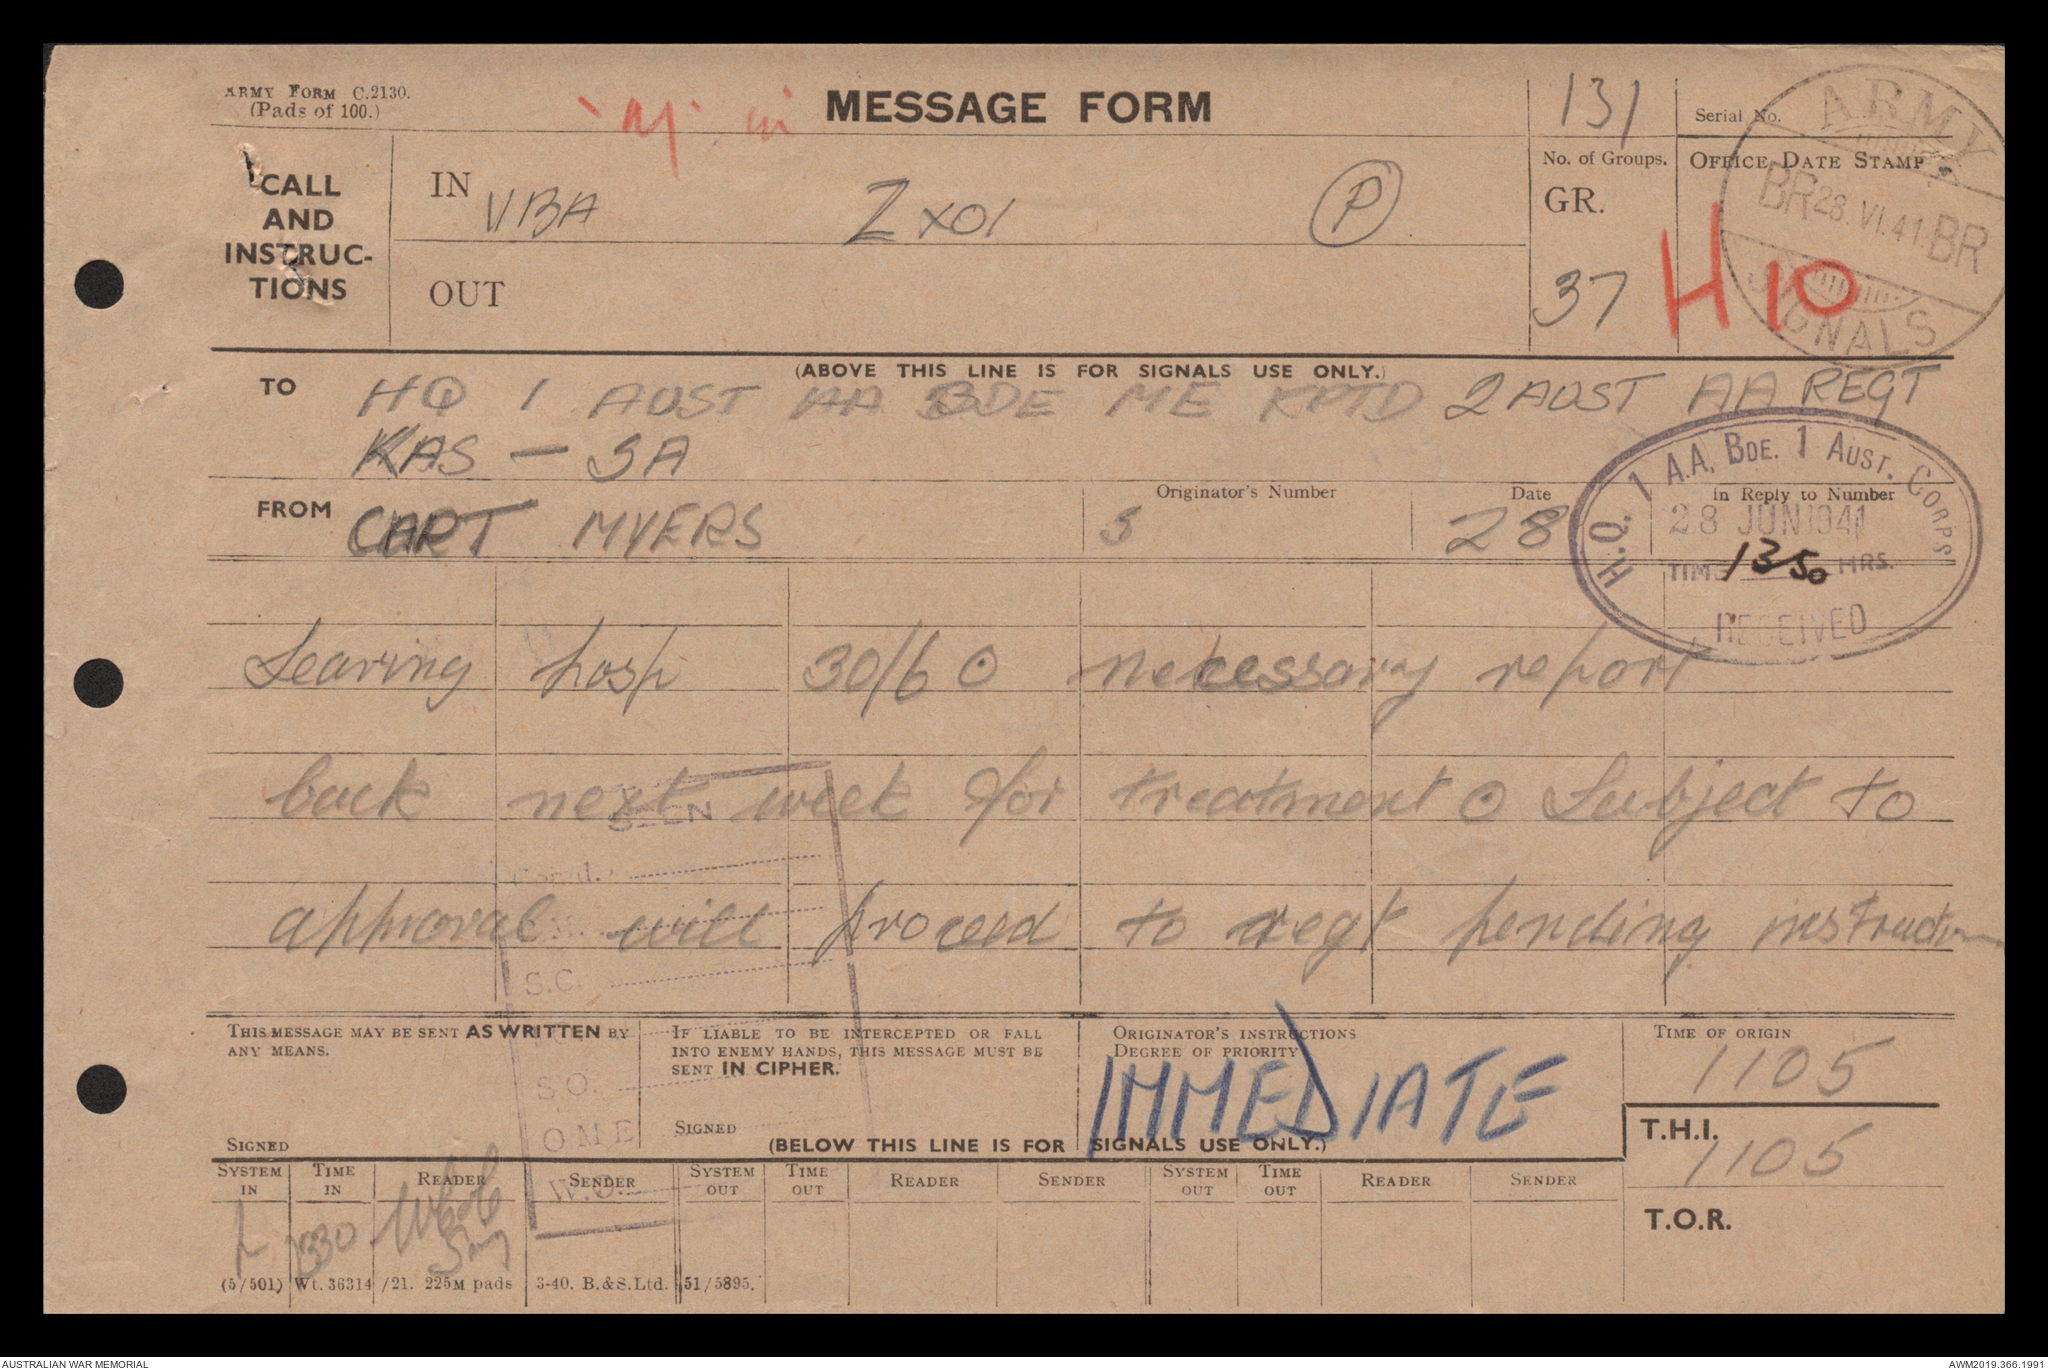 ARMY FORM C.2130.
(Pads of 100.)
MESSAGE FORM
131
Serial No.
CALL
AND
INSTRUC-
TIONS
IN VBA Z XO1 P
OUT
No. of Groups.
GR.
37
OFFICE DATE STAMP
ARMY
BR 28.VI.41 BR
SIGNALS
H 10
(ABOVE THIS LINE IS FOR SIGNALS USE ONLY.)
TO HQ 1 AUST AA BDE ME RPTD 2 AUST AA REGT
KAS - SA
FROM CAPT MYERS
Originator's Number
5
Date
28
in Reply to Number
H.Q. 1 A.A. BDE. 1 AUST. CORPS
28 JUN 1941
TIME 1350 HRS.
RECEIVED
Leaving hosp 30/6 ⊙ necessary report
back next week for treatment ⊙ Subject to
approval will proceed to regt pending instruction
SEEN
S.C.
S.O.
O M E
W.O.
THIS MESSAGE MAY BE SENT AS WRITTEN BY
ANY MEANS.
SIGNED
IF LIABLE TO BE INTERCEPTED OR FALL
INTO ENEMY HANDS, THIS MESSAGE MUST BE
SENT IN CIPHER.
SIGNED
ORIGINATOR'S INSTRUCTIONS
DEGREE OF PRIORITY
IMMEDIATE
TIME OF ORIGIN
1105
T.H.I.
1105
T.O.R.
(BELOW THIS LINE IS FOR SIGNALS USE ONLY.)
SYSTEM IN TIME IN READER SENDER SYSTEM OUT TIME OUT READER SENDER SYSTEM OUT TIME OUT READER SENDER
1330
(5/501) Wt. 36314/21. 225M pads 3-40. B.&S.Ltd. 51/5895.
AUSTRALIAN WAR MEMORIAL
AWM2019.366.1991